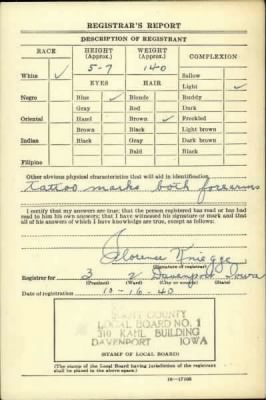 REGISTRAR'S REPORT
DESCRIPTION OF REGISTRANT
RACE HEIGHT (Approx.) WEIGHT (Approx.) COMPLEXION
5-7 140
White ✓ Sallow
EYES HAIR Light ✓
Negro Blue ✓ Blonde Ruddy
Gray Red Dark
Oriental Hazel Brown ✓ Freckled
Brown Black Light brown
Indian Black Gray Dark brown
Bald Black
Filipino
Other obvious physical characteristics that will aid in identification
tattoo marks both forearms
I certify that my answers are true; that the person registered has read or has had
read to him his own answers; that I have witnessed his signature or mark and that
all of his answers of which I have knowledge are true, except as follows:
Florence Kniegge
(Signature of registrar)
Registrar for 3 2 Davenport Iowa
(Precinct) (Ward) (City or county) (State)
Date of registration 10-16-40
SCOTT COUNTY
LOCAL BOARD NO. 1
310 KAHL BUILDING
DAVENPORT IOWA
(STAMP OF LOCAL BOARD)
(The stamp of the Local Board having jurisdiction of the registrant
shall be placed in the above space.)